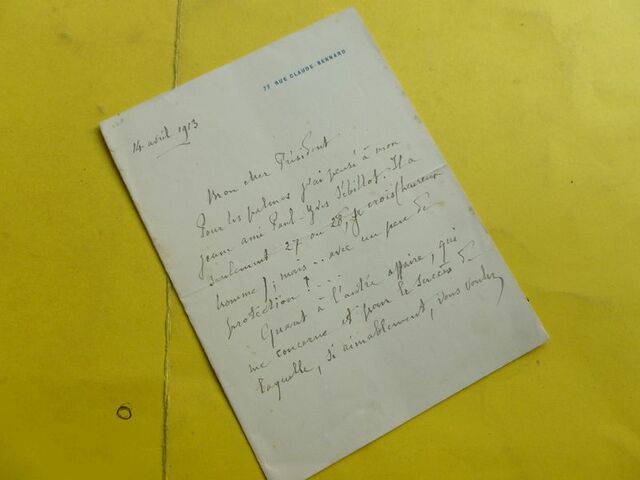 77 RUE CLAUDE BERNARD
14 avril 1913
Mon cher Président
Pour les palmes j'ai pensé à mon
jeune ami Paul-Yves Sébillot. Il a
seulement 27 ou 28, je crois (heureux
homme!); mais... avec un peu de
protection?...
Quant à l'autre affaire, qui
me concerne et pour le succès de
laquelle, si aimablement, vous voulez